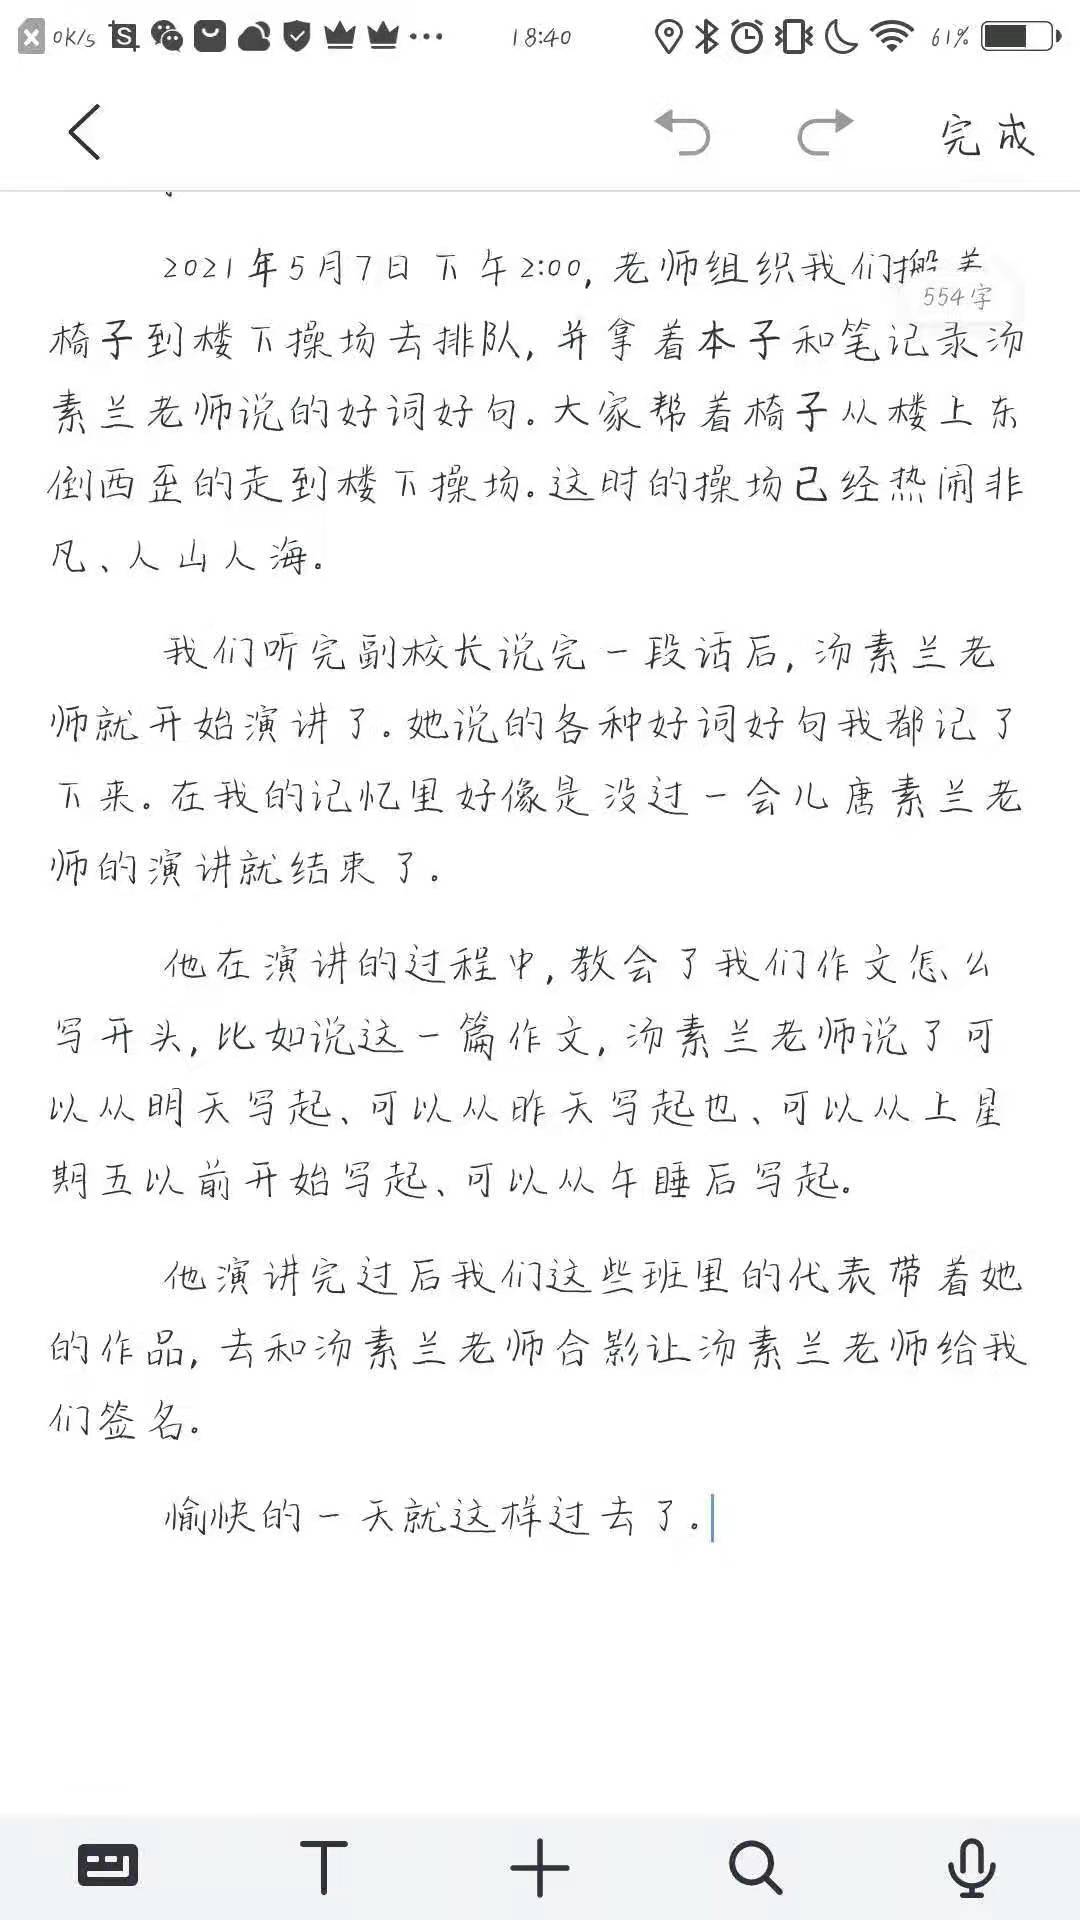 0K/s
18:40
61%
完成
2021年5月7日下午2:00,老师组织我们搬着
554字
椅子到楼下操场去排队,并拿着本子和笔记录汤
素兰老师说的好词好句。大家帮着椅子从楼上东
倒西歪的走到楼下操场。这时的操场已经热闹非
凡、人山人海。
我们听完副校长说完一段话后,汤素兰老
师就开始演讲了。她说的各种好词好句我都记了
下来。在我的记忆里好像是没过一会儿唐素兰老
师的演讲就结束了。
他在演讲的过程中,教会了我们作文怎么
写开头,比如说这一篇作文,汤素兰老师说了可
以从明天写起、可以从昨天写起也、可以从上星
期五以前开始写起、可以从午睡后写起。
他演讲完过后我们这些班里的代表带着她
的作品,去和汤素兰老师合影让汤素兰老师给我
们签名。
愉快的一天就这样过去了。